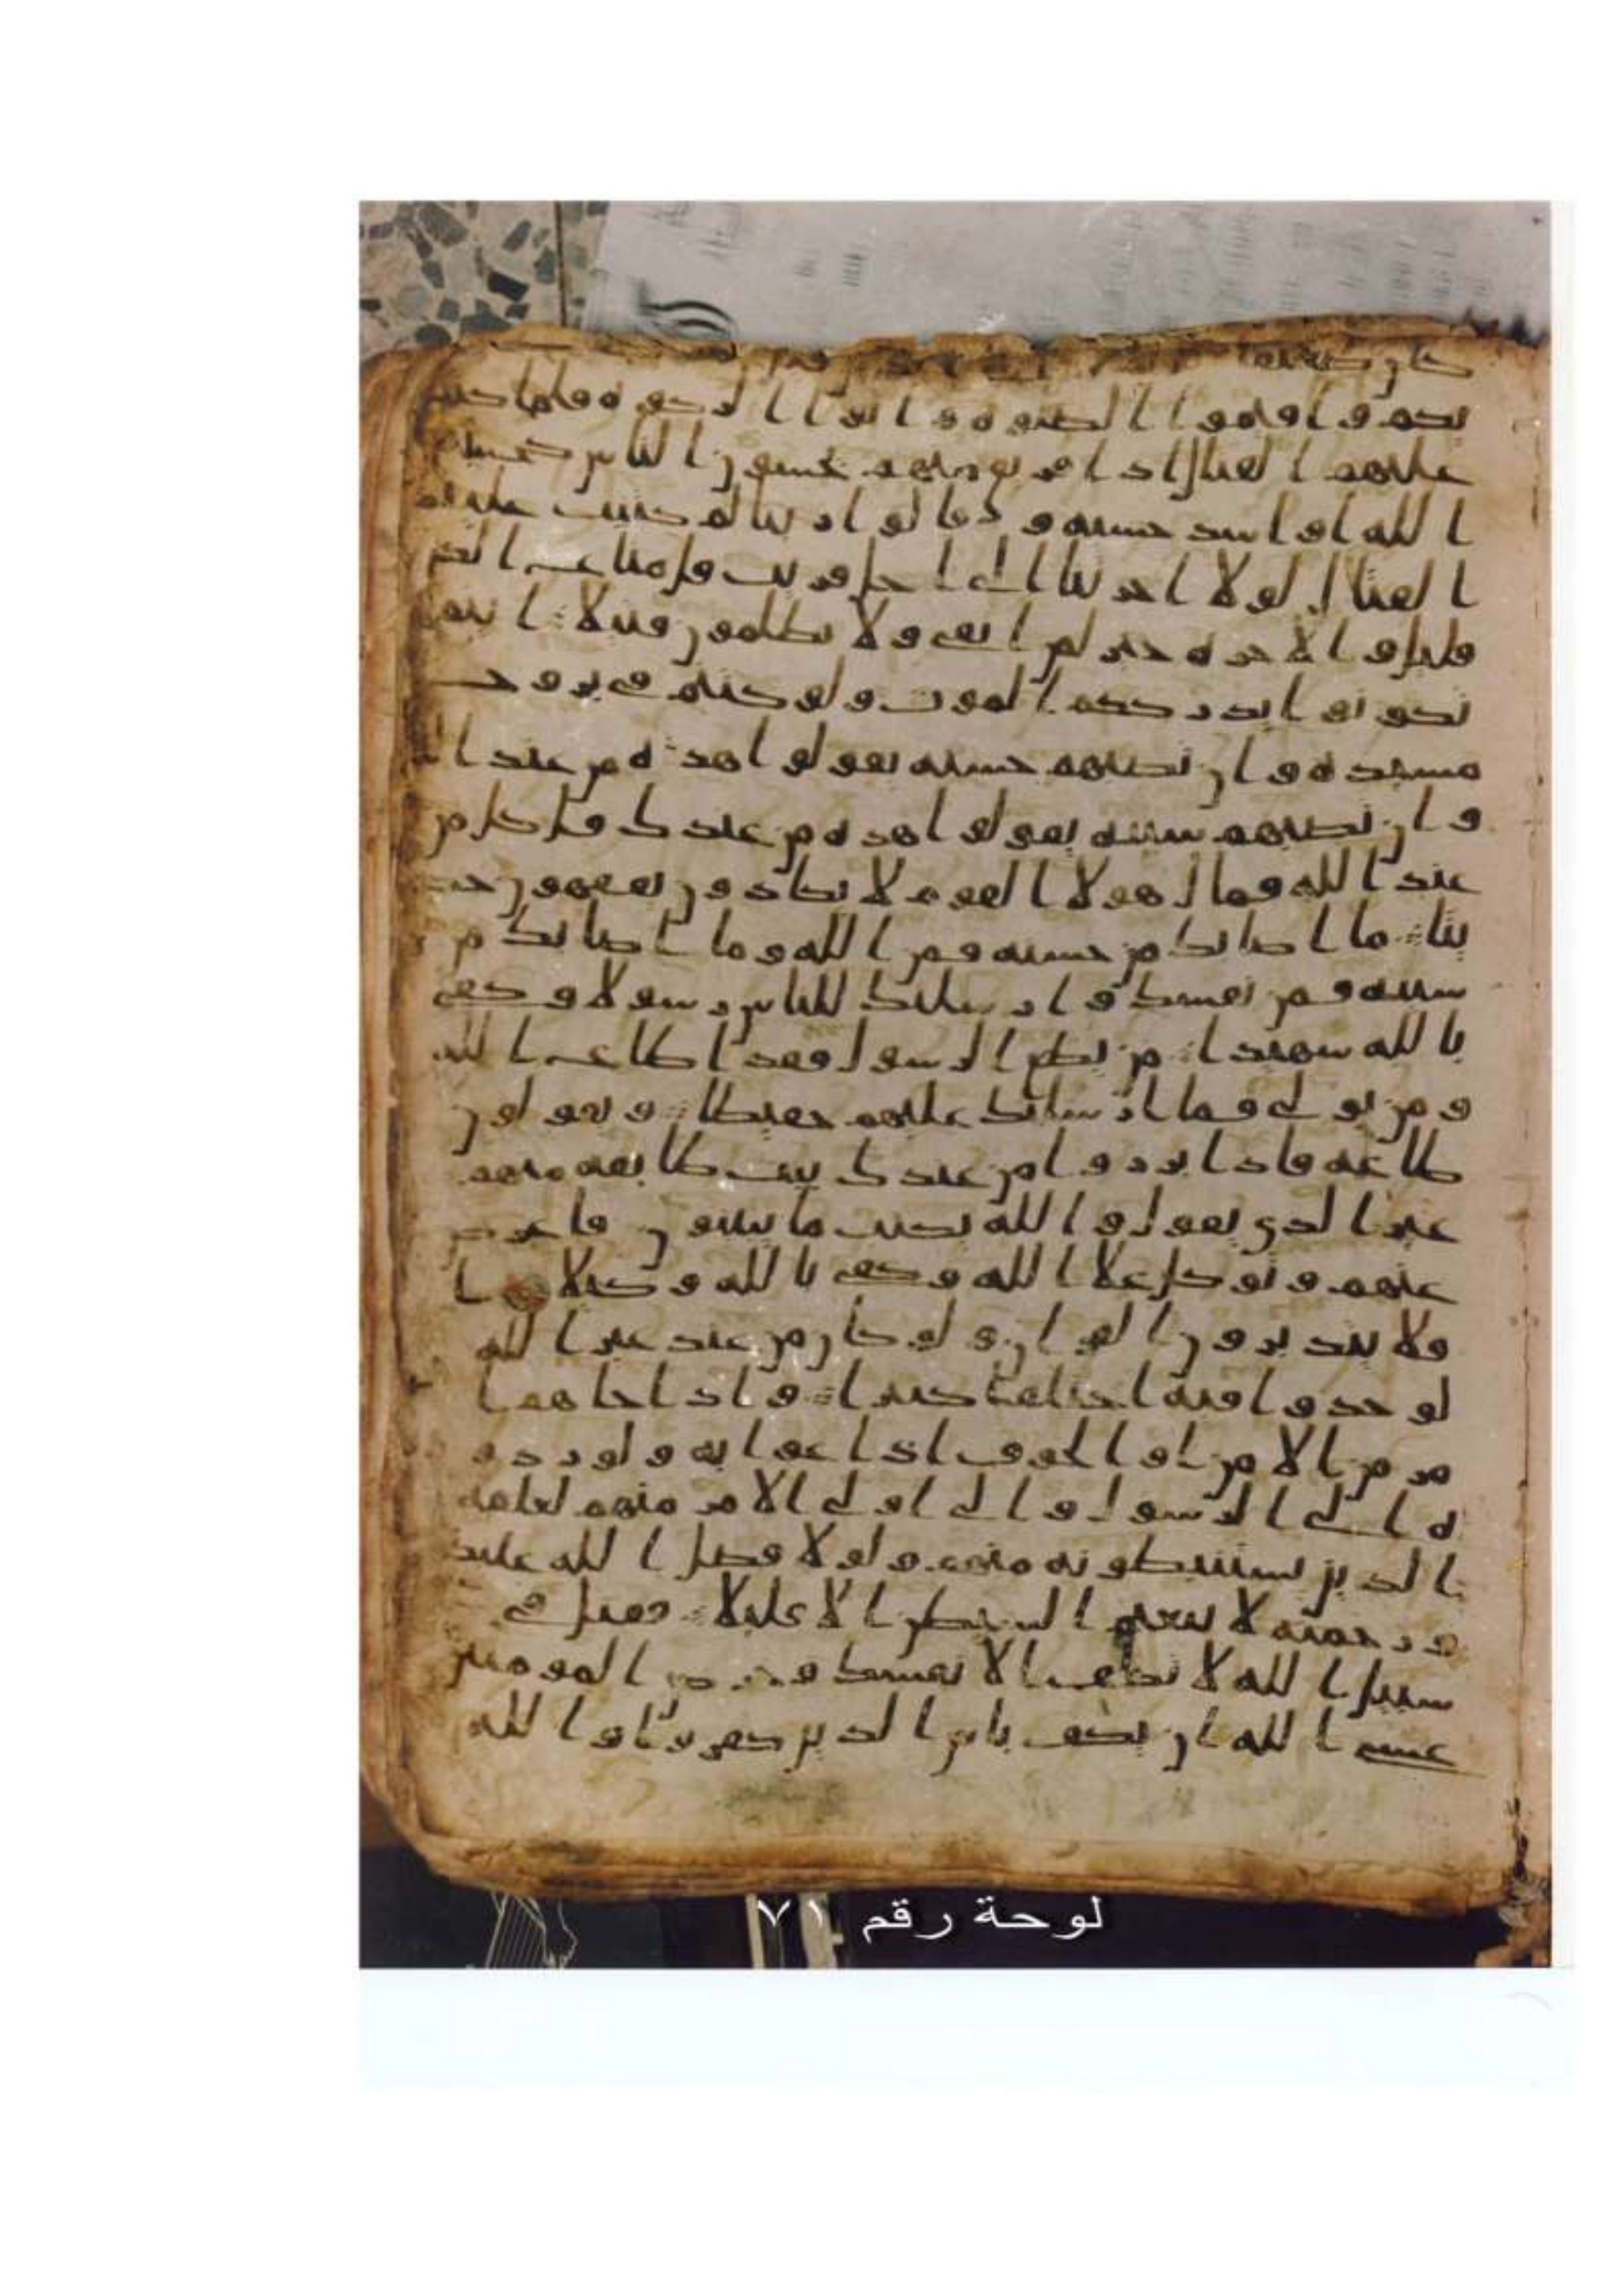 كان
يديكم و اقيموا الصلوة و اتوا الزكوة فلما كتب
عليهم القتال اذا فريق منهم يخشون الناس كخشية
الله او اشد خشية و قالوا ربنا لم كتبت علينا
القتال لولا اخرتنا الى اجل قريب قل متاع الد
قليل و الاخرة خير لمن اتقى ولا تظلمون فتيلا اينما
تكونوا يدرككم الموت ولو كنتم في بروج
مشيدة وان تصبهم حسنة يقولوا هذه من عند ا
وان تصبهم سيئة يقولوا هذه من عندك قل كل من
عند الله فمال هولا القوم لا يكادون يفقهون حد
يثا ما اصابك من حسنة فمن الله وما اصابك من
سيئة فمن نفسك وارسلنك للناس رسولا وكفى
بالله شهيدا من يطع الرسول فقد اطاع الله
ومن تولى فما ارسلنك عليهم حفيظا ويقولون
طاعة فاذا برزوا من عندك بيت طايفة منهم
غير الذي تقول والله يكتب ما يبيتون فاعرض
عنهم وتوكل علا الله وكفى بالله وكيلا ا
فلا يتدبرون القران ولو كان من عند غير الله
لوجدوا فيه اختلفا كثيرا واذا جاهم ا
مر من الامن او الخوف اذاعوا به ولو ردو
ه الى الرسول والى اولى الامر منهم لعلمه
الذين يستنبطونه منهم ولولا فضل الله عليكم
ورحمته لاتبعتم الشيطن الا قليلا فقتل في
سبيل الله لا تكلف الا نفسك وحرض المومنين
عسى الله ان يكف باس الذين كفروا والله
لوحة رقم ٧١